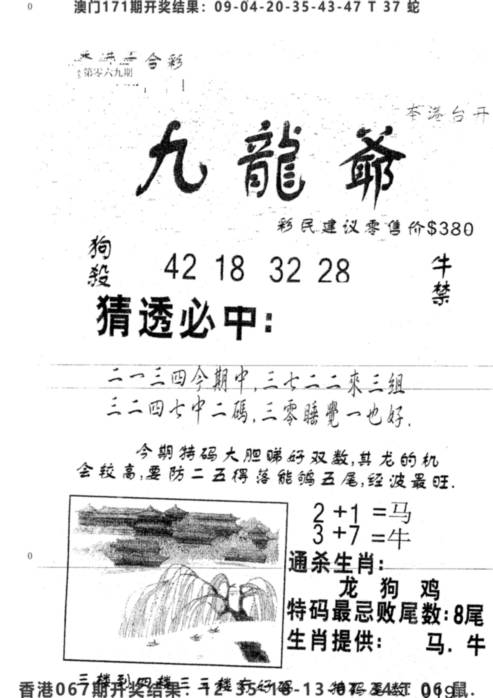 澳门171期开奖结果：09-04-20-35-43-47 T 37 蛇
合彩
第零六九期
本港台开
九龍爺
彩民建议零售价$380
狗殺
42 18 32 28
牛禁
猜透必中：
二一三四今期中,三七二二來三组
三二四七中二碼,三零睡覺一也好.
今期特码大胆睇好双数,其龙的机
会较高,要防二五得落能够五尾,经波最旺.
2+1=马
3+7=牛
通杀生肖：
龙 狗 鸡
特码最忌败尾数：8尾
生肖提供： 马．牛
香港067期开奖结果：12-35-18-13
06 鼠.